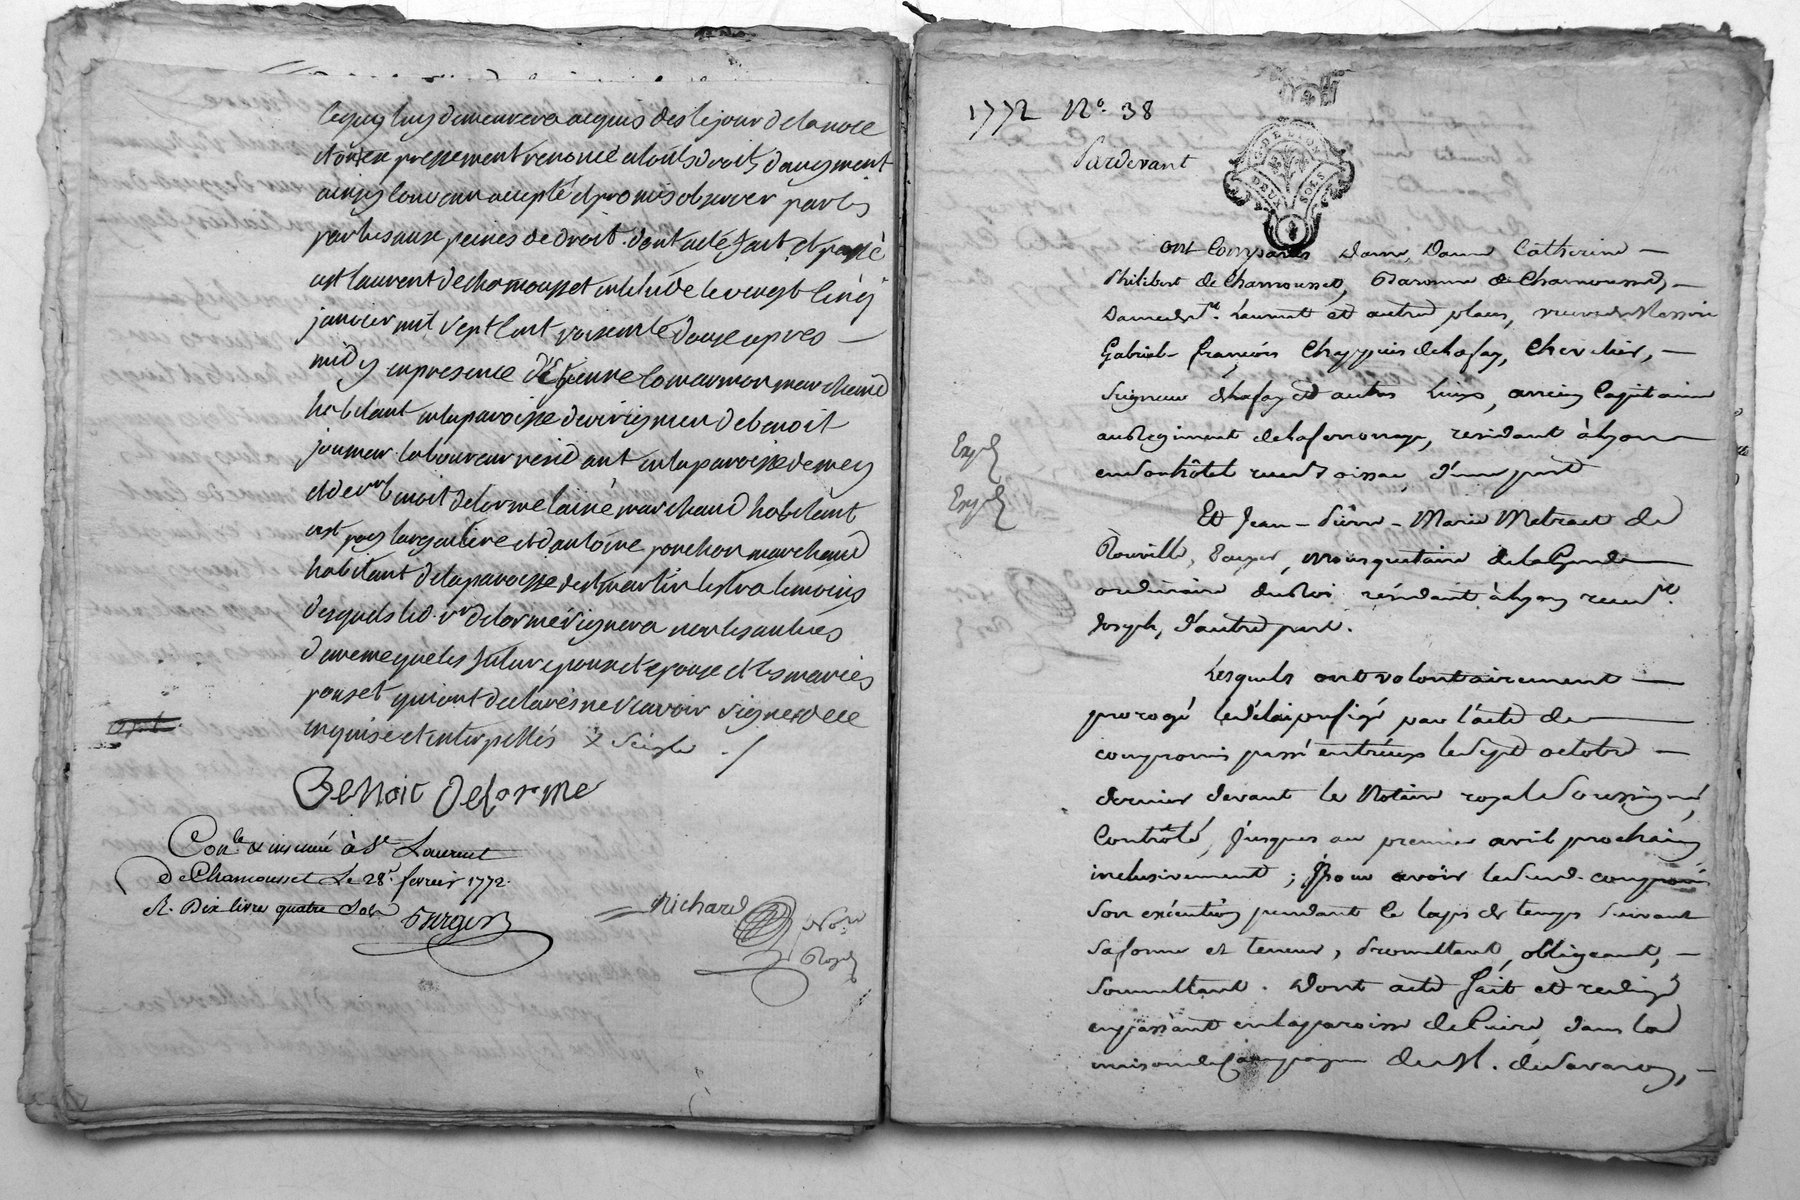 lequel luy demeurera acquis des le jour de la noce
et on expressement renoncé a touts droits d'augment
ainsy convenu accepté et promis observer par les
parties aux peines de droit. dont acte fait et passé
a st laurent de chamousset en l'etude le vingt cinq
janvier mil sept cent soixente douze apres
midy en presence d'etienne marchand
habitant en la paroisse de et de benoit
laboureur residant en la paroisse de meys
et de sr benoit delorme lainé marchand habitant
st foy largentiere et d'antoine ponchon marchand
habitant de la paroisse de st martin lestra temoins
desquels led. sr delorme signera non les autres
de meme que les futurs epoux et epouse et les mariés
ponset qui ont declarés ne scavoir signer de ce
enquis et interpellés
Benoit Delorme
Con.lé & insinué à St Laurent
De Chamousset Le 28e. fevrier 1772.
R. Dix livre quatre sols
Richard
No.re
Royal
1772 No. 38
Pardevant
G. DE LYON
DEUX SOLS
ont Comparus Dame, Dame Catherine
Philibert de Chamousset, Baronne de Chamousset,
Dame de St. Laurent et autres places, veuve de Messire
Gabriel-françois Chappuis de la fay, Chevalier,
Seigneur de la fay et autres lieux, ancien Capitaine
au Regiment de la ferronnaye, residant à Lyon
en son hôtel rue d'une part
Exp.d
Exp.d
Et Jean-Pierre-Marie Metract de
Rouville, Ecuyer, mousquetaire de la Garde
ordinaire du Roi résidant à Lyon rue St.
Joseph, d'autre part.
Lesquels ont volontairement
prorogé le délai préfigé par l'acte de
compromis passé entr'eux le sept octobre
dernier devant le Notaire royal soussigné,
Contrôlé, jusques au premier avril prochain
inclusivement; pour avoir ledit compromis
son exécution pendant le laps de temps suivant
sa forme et teneur, promettant, obligeant,
soumettant. Dont acte fait et redigé
en passant en la paroisse de dans la
maison de Campagne de M. de Savaron,